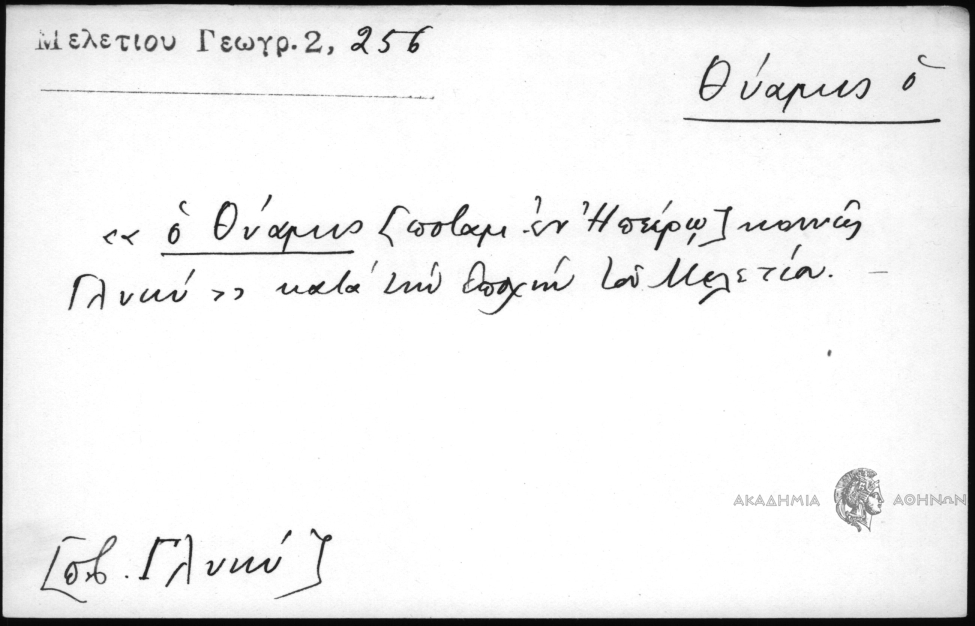 Μελετίου Γεωγρ. 2, 256
Θύαμις ὁ
«« ὁ Θύαμις [ποταμ. ἐν Ἠπείρῳ] κοινῶς
Γλυκύ »» κατά τήν ἐποχήν τοῦ Μελετίου. –
ΑΚΑΔΗΜΙΑ ΑΘΗΝΩΝ
[πβ. Γλυκύ]